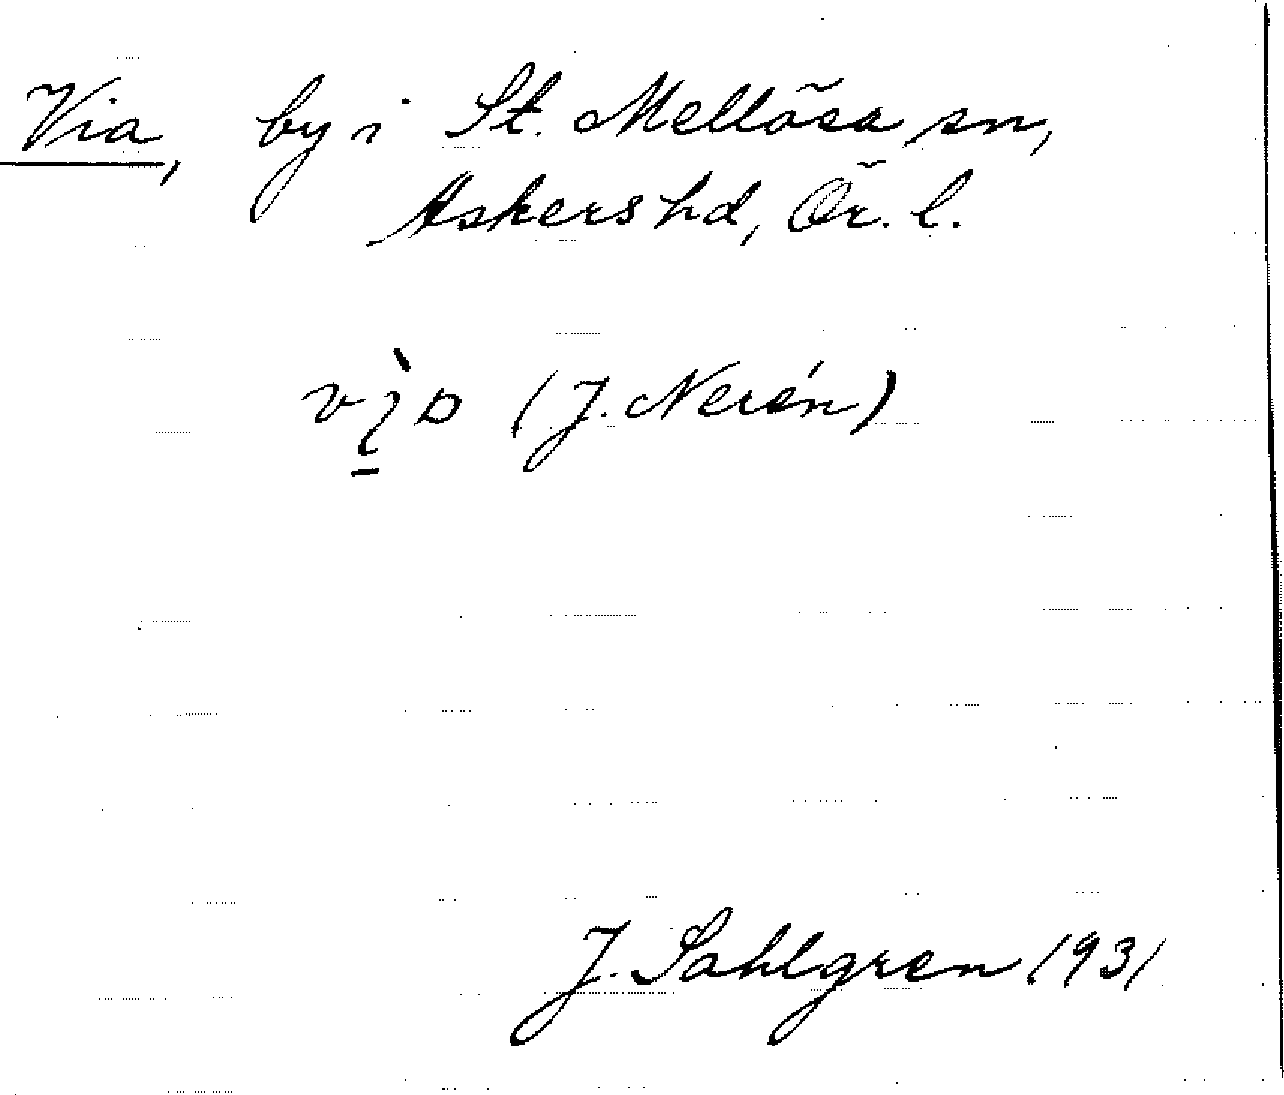 Via, by i St. Mellösa sn,
Askers hd, Ör. l.
(J. Nerén)
J. Sahlgren 1931